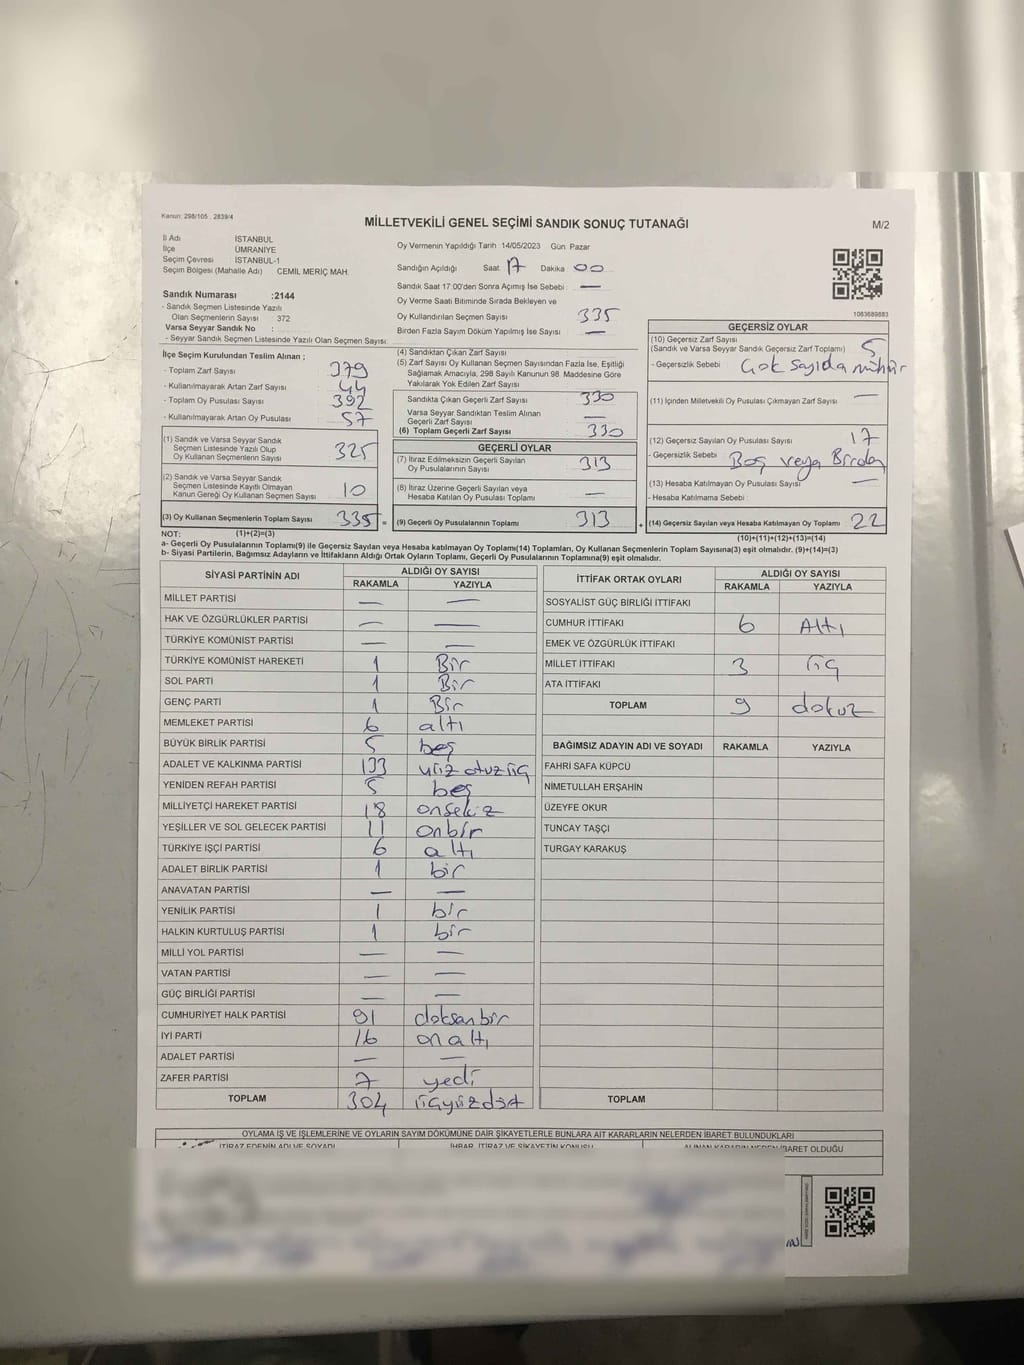 Kanun: 298/105 , 2839/4
MİLLETVEKİLİ GENEL SEÇİMİ SANDIK SONUÇ TUTANAĞI
M/2
İl Adı İSTANBUL
İlçe ÜMRANİYE
Seçim Çevresi : İSTANBUL-1
Seçim Bölgesi (Mahalle Adı) CEMİL MERİÇ MAH.
Oy Vermenin Yapıldığı Tarih :14/05/2023 Gün: Pazar
Sandığın Açıldığı Saat 17 Dakika 00
Sandık Saat 17:00'den Sonra Açımış İse Sebebi : —
Oy Verme Saati Bitiminde Sırada Bekleyen ve
Oy Kullandırılan Seçmen Sayısı 335
Birden Fazla Sayım Döküm Yapılmış İse Sayısı —
1063689883
Sandık Numarası :2144
- Sandık Seçmen Listesinde Yazılı
Olan Seçmenlerin Sayısı 372
Varsa Seyyar Sandık No :
- Seyyar Sandık Seçmen Listesinde Yazılı Olan Seçmen Sayısı:
İlçe Seçim Kurulundan Teslim Alınan ;
- Toplam Zarf Sayısı 379
- Kullanılmayarak Artan Zarf Sayısı 44
- Toplam Oy Pusulası Sayısı 392
- Kullanılmayarak Artan Oy Pusulası 57
(1) Sandık ve Varsa Seyyar Sandık
Seçmen Listesinde Yazılı Olup
Oy Kullanan Seçmenlerin Sayısı 325
(2) Sandık ve Varsa Seyyar Sandık
Seçmen Listesinde Kayıtlı Olmayan
Kanun Gereği Oy Kullanan Seçmen Sayısı 10
(3) Oy Kullanan Seçmenlerin Toplam Sayısı 335 =
(4) Sandıktan Çıkan Zarf Sayısı
(5) Zarf Sayısı Oy Kullanan Seçmen Sayısından Fazla İse, Eşitliği
Sağlamak Amacıyla, 298 Sayılı Kanunun 98. Maddesine Göre
Yakılarak Yok Edilen Zarf Sayısı
Sandıkta Çıkan Geçerli Zarf Sayısı 330
Varsa Seyyar Sandıktan Teslim Alınan
Geçerli Zarf Sayısı —
(6) Toplam Geçerli Zarf Sayısı 330
GEÇERLİ OYLAR
(7) İtiraz Edilmeksizin Geçerli Sayılan
Oy Pusulalarının Sayısı 313
(8) İtiraz Üzerine Geçerli Sayılan veya
Hesaba Katılan Oy Pusulası Toplamı —
(9) Geçerli Oy Pusulalarının Toplamı 313 +
GEÇERSİZ OYLAR
(10) Geçersiz Zarf Sayısı
(Sandık ve Varsa Seyyar Sandık Geçersiz Zarf Toplamı) 5
- Geçersizlik Sebebi : Çok sayıda mühür
(11) İçinden Milletvekili Oy Pusulası Çıkmayan Zarf Sayısı —
(12) Geçersiz Sayılan Oy Pusulası Sayısı 17
- Geçersizlik Sebebi : Boş veya Birden
(13) Hesaba Katılmayan Oy Pusulası Sayısı —
- Hesaba Katılmama Sebebi :
(14) Geçersiz Sayılan veya Hesaba Katılmayan Oy Toplamı 22
NOT: (1)+(2)=(3) (10)+(11)+(12)+(13)=(14)
a- Geçerli Oy Pusulaları Toplamı(9) ile Geçersiz Sayılan veya Hesaba katılmayan Oy Toplamı(14) Toplamları, Oy Kullanan Seçmenlerin Toplam Sayısına(3) eşit olmalıdır. (9)+(14)=(3)
b- Siyasi Partilerin, Bağımsız Adayların ve İttifakların Aldığı Ortak Oyların Toplamı, Geçerli Oy Pusulalarının Toplamına(9) eşit olmalıdır.
SİYASİ PARTİNİN ADI ALDIĞI OY SAYISI
RAKAMLA YAZIYLA
MİLLET PARTİSİ — —
HAK VE ÖZGÜRLÜKLER PARTİSİ — —
TÜRKİYE KOMÜNİST PARTİSİ — —
TÜRKİYE KOMÜNİST HAREKETİ 1 Bir
SOL PARTİ 1 Bir
GENÇ PARTİ 1 Bir
MEMLEKET PARTİSİ 6 altı
BÜYÜK BİRLİK PARTİSİ 5 beş
ADALET VE KALKINMA PARTİSİ 133 yüz otuz üç
YENİDEN REFAH PARTİSİ 5 beş
MİLLİYETÇİ HAREKET PARTİSİ 18 onsekiz
YEŞİLLER VE SOL GELECEK PARTİSİ 11 onbir
TÜRKİYE İŞÇİ PARTİSİ 6 altı
ADALET BİRLİK PARTİSİ 1 bir
ANAVATAN PARTİSİ — —
YENİLİK PARTİSİ 1 bir
HALKIN KURTULUŞ PARTİSİ 1 bir
MİLLİ YOL PARTİSİ — —
VATAN PARTİSİ — —
GÜÇ BİRLİĞİ PARTİSİ — —
CUMHURİYET HALK PARTİSİ 91 doksanbir
İYİ PARTİ 16 on altı
ADALET PARTİSİ — —
ZAFER PARTİSİ 7 yedi
TOPLAM 304 üçyüzdört
İTTİFAK ORTAK OYLARI ALDIĞI OY SAYISI
RAKAMLA YAZIYLA
SOSYALİST GÜÇ BİRLİĞİ İTTİFAKI
CUMHUR İTTİFAKI 6 Altı
EMEK VE ÖZGÜRLÜK İTTİFAKI
MİLLET İTTİFAKI 3 üç
ATA İTTİFAKI
TOPLAM 9 dokuz
BAĞIMSIZ ADAYIN ADI VE SOYADI RAKAMLA YAZIYLA
FAHRİ SAFA KÜPCÜ
NİMETULLAH ERŞAHİN
ÜZEYFE OKUR
TUNCAY TAŞÇI
TURGAY KARAKUŞ
TOPLAM
OYLAMA İŞ VE İŞLEMLERİNE VE OYLARIN SAYIM DÖKÜMÜNE DAİR ŞİKAYETLERLE BUNLARA AİT KARARLARIN NELERDEN İBARET BULUNDUKLARI
İTİRAZ EDENİN ADI VE SOYADI İHBAR, İTİRAZ VE ŞİKAYETİN KONUSU ALINAN KARARIN NEDEN İBARET OLDUĞU